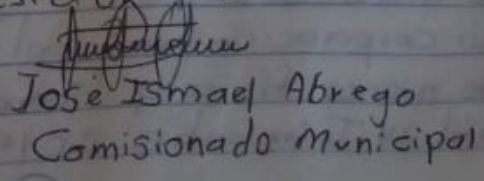 José Ismael Abrego
Comisionado Municipal